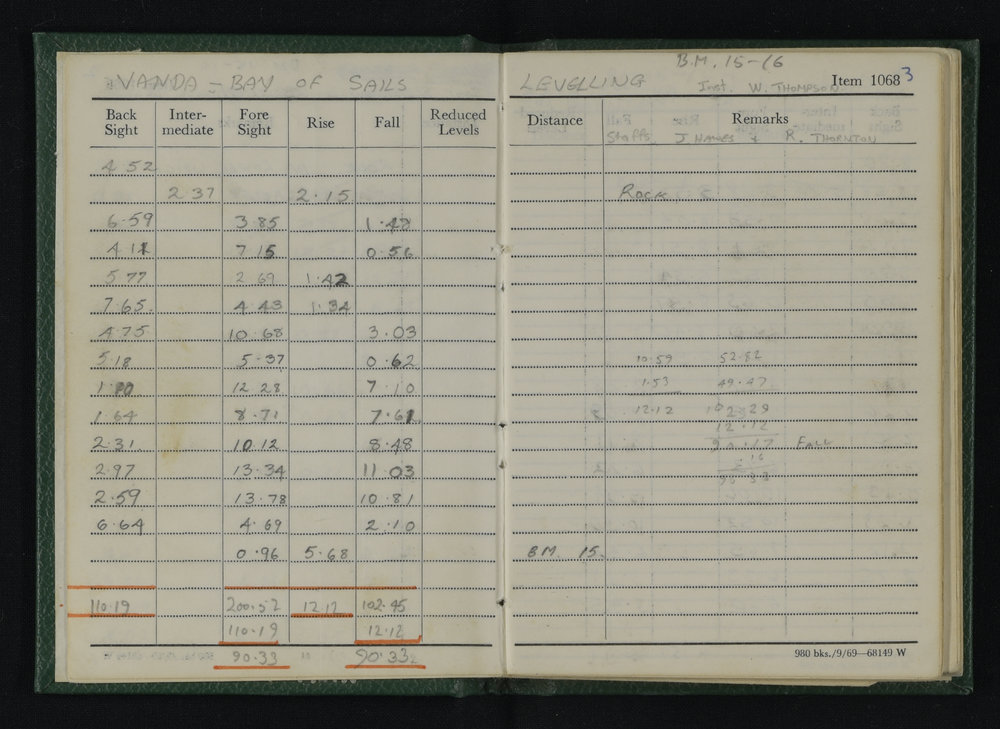 VANDA - BAY OF SAILS
Back Sight Inter-mediate Fore Sight Rise Fall Reduced Levels
4 52
2.37 2.15
6.59 3.85 1.48
4 11 7 15 0.56
5.77 2 69 1.42
7.65 4.43 1.34
4.75 10.68 3.03
5.18 5.37 0.62
12 28 7.10
1.64 8.71 7.61
2.31 10.12 8.48
2.97 13.34 11 03
2.59 13.78 10.81
6.64 4.69 2.10
0.96 5.68
110.19 200.52 12.12 102.45
110.19 12.12
90.33 90.33
B.M. 15-16
LEVELLING Inst. W. THOMPSON Item 1068 3
Distance Remarks
Staffs J HAWES & R. THORNTON
ROCK
10.59 52.82
1.53 49.47
12.12 102.29
12.12
90.17 FALL
.16
90 33
BM 15.
980 bks./9/69—68149 W